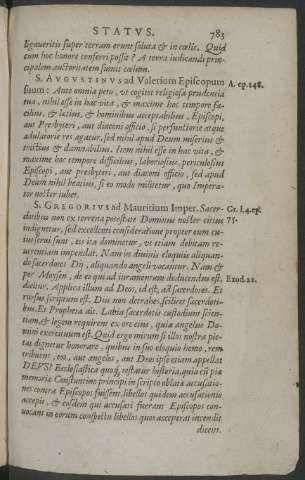 STATVS. 783
ligaueritis super terram erunt soluta & in cœlis. Quid
cum hoc honore conferri possit? A terra iudicandi prin-
cipalem auctoritatem sumit cœlum.
S. AVGVSTINVS ad Valerium Episcopum A. ep. 148.
suum: Ante omnia peto, vt cogitet religiosa prudentia
tua, nihil esse in hac vita, & maxime hoc tempore fa-
cilius, & lætius, & hominibus acceptabilius, Episcopi,
aut Presbyteri, aut diaconi officio, si perfunctorie atque
adulatorie res agatur, sed nihil apud Deum miserius &
tristius & damnabilius. Item nihil esse in hac vita, &
maxime hoc tempore difficilius, laboriosius, periculosius
Episcopi, aut presbyteri, aut diaconi officio, sed apud
Deum nihil beatius, si eo modo militetur, quo Impera-
tor noster iubet.
S. GREGORIVS ad Mauritium Imper. Sacer- Gr. l. 4. ep.
dotibus non ex terrena potestate Dominus noster citius 75.
indignetur, sed excellenti consideratione propter eum cu-
ius serui sunt, eis ita dominetur, vt etiam debitam re-
uerentiam impendat. Nam in diuinis eloquiis aliquan-
do sacerdotes Dij, aliquando angeli vocantur. Nam &
per Moysen, de eo qui ad iuramentum deducendus est, Exod. 22.
dicitur. Applica illum ad Deos, id est, ad sacerdotes. Et
rursus scriptum est. Diis non detrahes, scilicet sacerdoti-
bus. Et Propheta ait. Labia sacerdotis custodiunt scien-
tiam, & legem requirent ex ore eius, quia angelus Do-
mini exercituum est. Quid ergo mirum si illos nostra pie-
tas dignetur honorare, quibus in suo eloquio honorem
tribuens, eos, aut angelos, aut Deos ipse etiam appellat
DEVS? Ecclesiastica quoq; testatur historia, quia cùm piæ
memoriæ Constantino principi in scripto oblatæ accusatio-
nes contra Episcopos fuissent, libellos quidem accusationis
accepit, & eosdem qui accusati fuerant Episcopos con-
uocans in eorum conspectu libellos quos acceperat incendit
dicens.